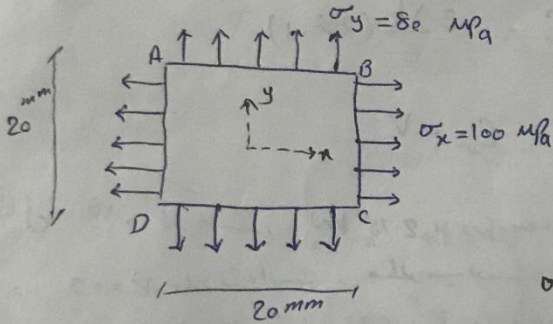 σy = 80 MPa
A
B
20 mm
y
x
σx = 100 MPa
D
C
20mm